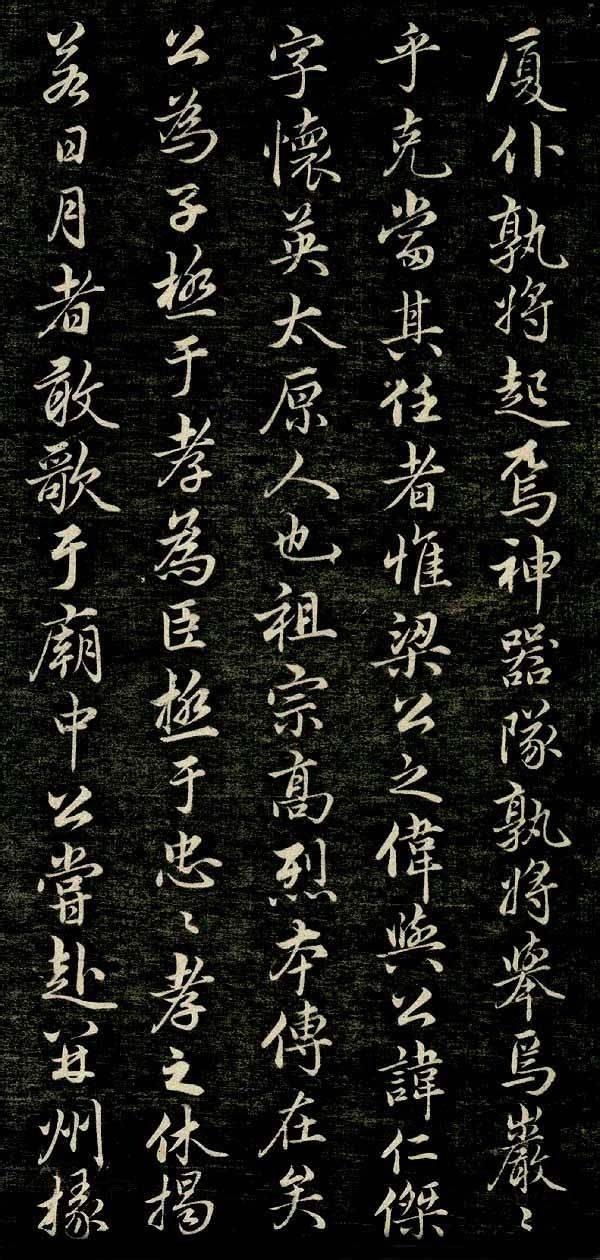 厦仆孰将起焉神器隊孰将舉焉巖〻
乎克當其任者惟梁公之偉與公諱仁傑
字懷英太原人也祖宗高烈本傳在矣
公為子極于孝為臣極于忠〻孝之休揭
若日月者敢歌于廟中公嘗赴并州掾